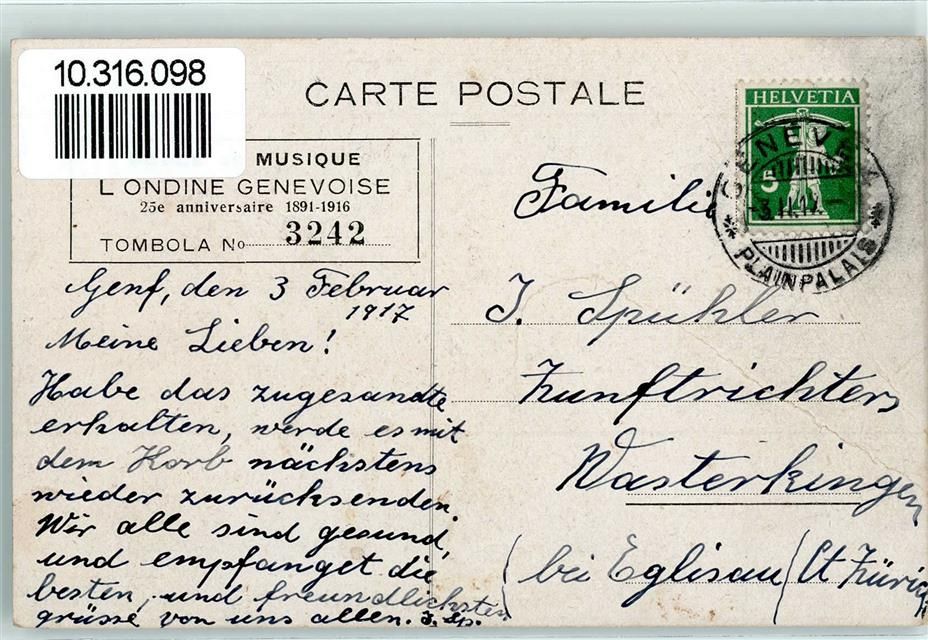 10.316.098
CARTE POSTALE
MUSIQUE
L'ONDINE GENEVOISE
25e anniversaire 1891-1916
TOMBOLA No 3242
HELVETIA
5
GENÈVE
3.II.17.
PLAINPALAIS
Genf, den 3 Februar
1917
Meine Lieben!
Habe das zugesandte
erhalten, werde es mit
dem Korb nächstens
wieder zurücksenden.
Wir alle sind gesund,
und empfanget die
besten, und freundlichsten
grüsse von uns allen. J. Sp.
Familie
J. Spühler
Zunftrichters
Wasterkingen
(bei Eglisau (Ct Zürich